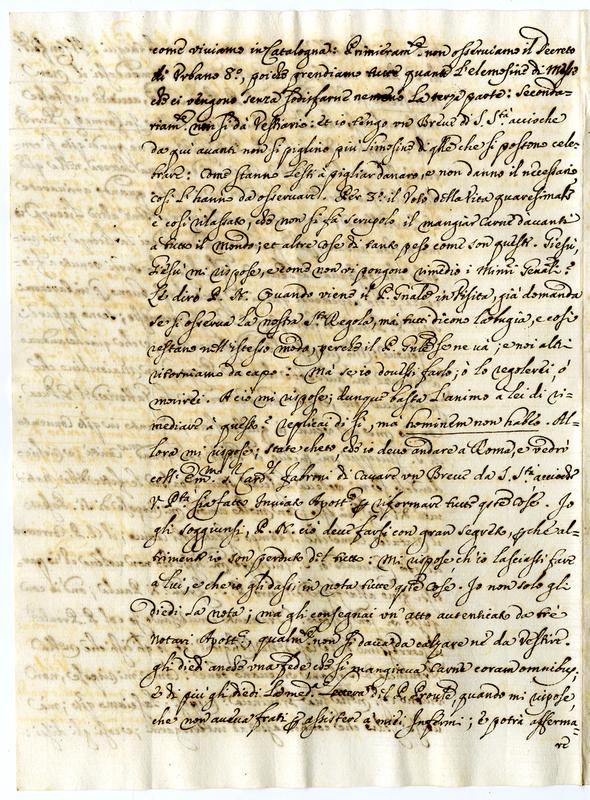 come viviamo in Catalogna: Primieram.te non osserviamo il Decreto
di Urbano 8.o, poiche prendiamo tutte quante l'elemosine di Messe
che ci vengono senza sodisfarne nemeno la terza parte: Seconda-
riam.te non si dà Vestiario: et io tengo un Breve di S. S.tà accioche
da qui avanti non si piglino più limosine di q.lle che si possono cele-
brare: Come stanno lesti à pigliar danaro, e non danno il necessario
così l'hanno da osservare. Per 3.o il Voto della Vita quaresimale
è così rilassato, che non si fà scrupolo il mangiar Carne davanti
à tutto il mondo; et altre cose di tanto peso come son queste. Giesù,
Giesù mi rispose, e come non vi pongono rimedio i Nostri Gen.ali?
Le dirò P. N. Quando viene il P. Gn̄ale in Visita, già domanda
se si osserva la nostra S.ta Regola, mà tutti dicono la bugia, e così
restano nell'istesso modo, perche il P. Gn̄ale se ne và; e noi altri
ritorniamo da capo: Mà se io dovessi farlo; ò lo regolerei, ò
morirei. A ciò mi rispose; dunque basta l'animo a lei di ri-
mediare à questo? replicai di sì, ma hominem non habeo. Al-
lora mi rispose; state cheto, che io devo andare a Roma, e vedrò
coll' Em.mo S.r Card.l Fabroni di cavare un Breve da S. S.tà accioche
V. P.tà sia fatto Inviato Apost.co p riformare tutte q.ste cose. Io
gli soggiunsi, P. N. ciò deve farsi con gran segreto, p che al-
trimenti io son perduto del tutto: Mi rispose, ch'io lasciassi fare
a lui, e che io gli dassi in nota tutte q.ste cose. Io non solo gli
diedi la nota; mà gli consegnai un'atto autenticato da trè
Notari Apost.ci, qualm.te non si dava da calzare nè da vestire.
gli diedi anche una fede, che si mangiava Carne coram omnibus;
e di più gli diedi la med.a Lettera del P. Prov.le, quando mi rispose,
che non aveva frati p assistere à miei Infermi; e potrà afferma-
re